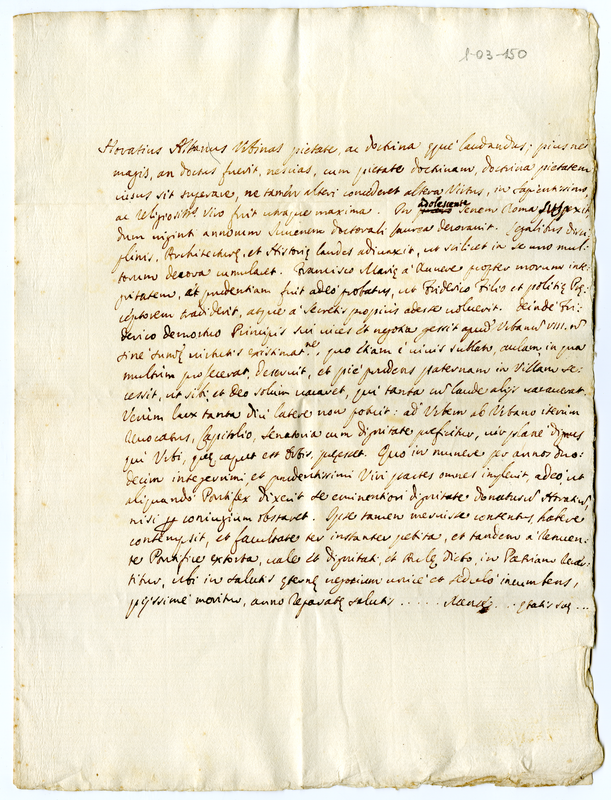 1-03-150
Horatius Albanus Urbinas pietate, ac doctrina æque laudandus; pius ne
magis, an doctus fuerit, nescias, cum pietate doctrinam, doctrina pietatem
visus sit superare, ne tamen alteri concederet altera Virtus, in sapientissimo
ac Religiosiss. Viro fuit utraque maxima. In
Adolescente senem Roma suspexit
dum viginti annorum Iuvenem doctorali laurea decoravit. Legalibus disci
plinis, Architecturę, et Historię laudes adiunxit, ut scilicet in se uno mul-
torum decora cumularet. Francisco Marię a Ruvere propter morum inte-
gritatem, et prudentiam fuit adeo probatus, ut Friderico Filio et politię Pręc
ceptorem tradiderit, atque a Secretis propriis adesse voluerit. Deinde Fri-
derico demortuo Principis sui vices et negotia gessit apud Urbanum VIII. non
sine summę virtutis existimat.ne, quo etiam e vivis sublato, aulam, in qua
multum profecerat, deseruit, et pie prudens paternam in Villam se-
cessit, ut sibi, et Deo solum vacaret, qui tanta cum laude alijs vacaverat.
Verum lux tanta diu latere non potuit: ad Urbem ab Urbano iterum
Revocatus, Capitolio, Senatoria cum dignitate pręficitur, vir plane dignus
qui Urbi, quę caput est Orbis, pręesset. Quo in munere per annos duo-
decim integerrimi, et prudentissimi Viri partes omnes implevit, adeo ut
aliquando Pontifex dixerit se eminentiori dignitate donaturum Horatium,
nisi per coniugium obstaret. Ipse tamen meruisse contentus, habere
contempsit, et facultate ter instanter petita, et tandem a renuen-
te Pontifice extorta, vale et dignitati, et Aulę dicto, in Patriam redi-
titur, ubi in salutis ęternę negotium unice et sedulo incumbens,
pijssime moritur, anno Reparatę salutis ...... ętatis suę ...